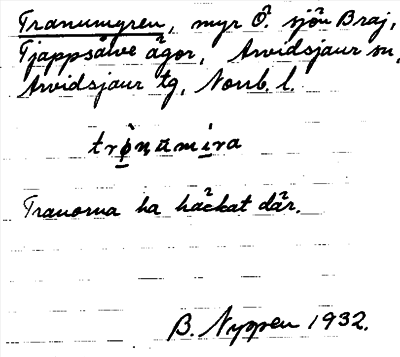 Tranumyren, myr Ö. sjön Braj,
Tjappsåive ägor, Arvidsjaur sn,
Arvidsjaur tg, Norrb. l.
trònamira
Tranorna ha häckat där.
B. Nyppen 1932.